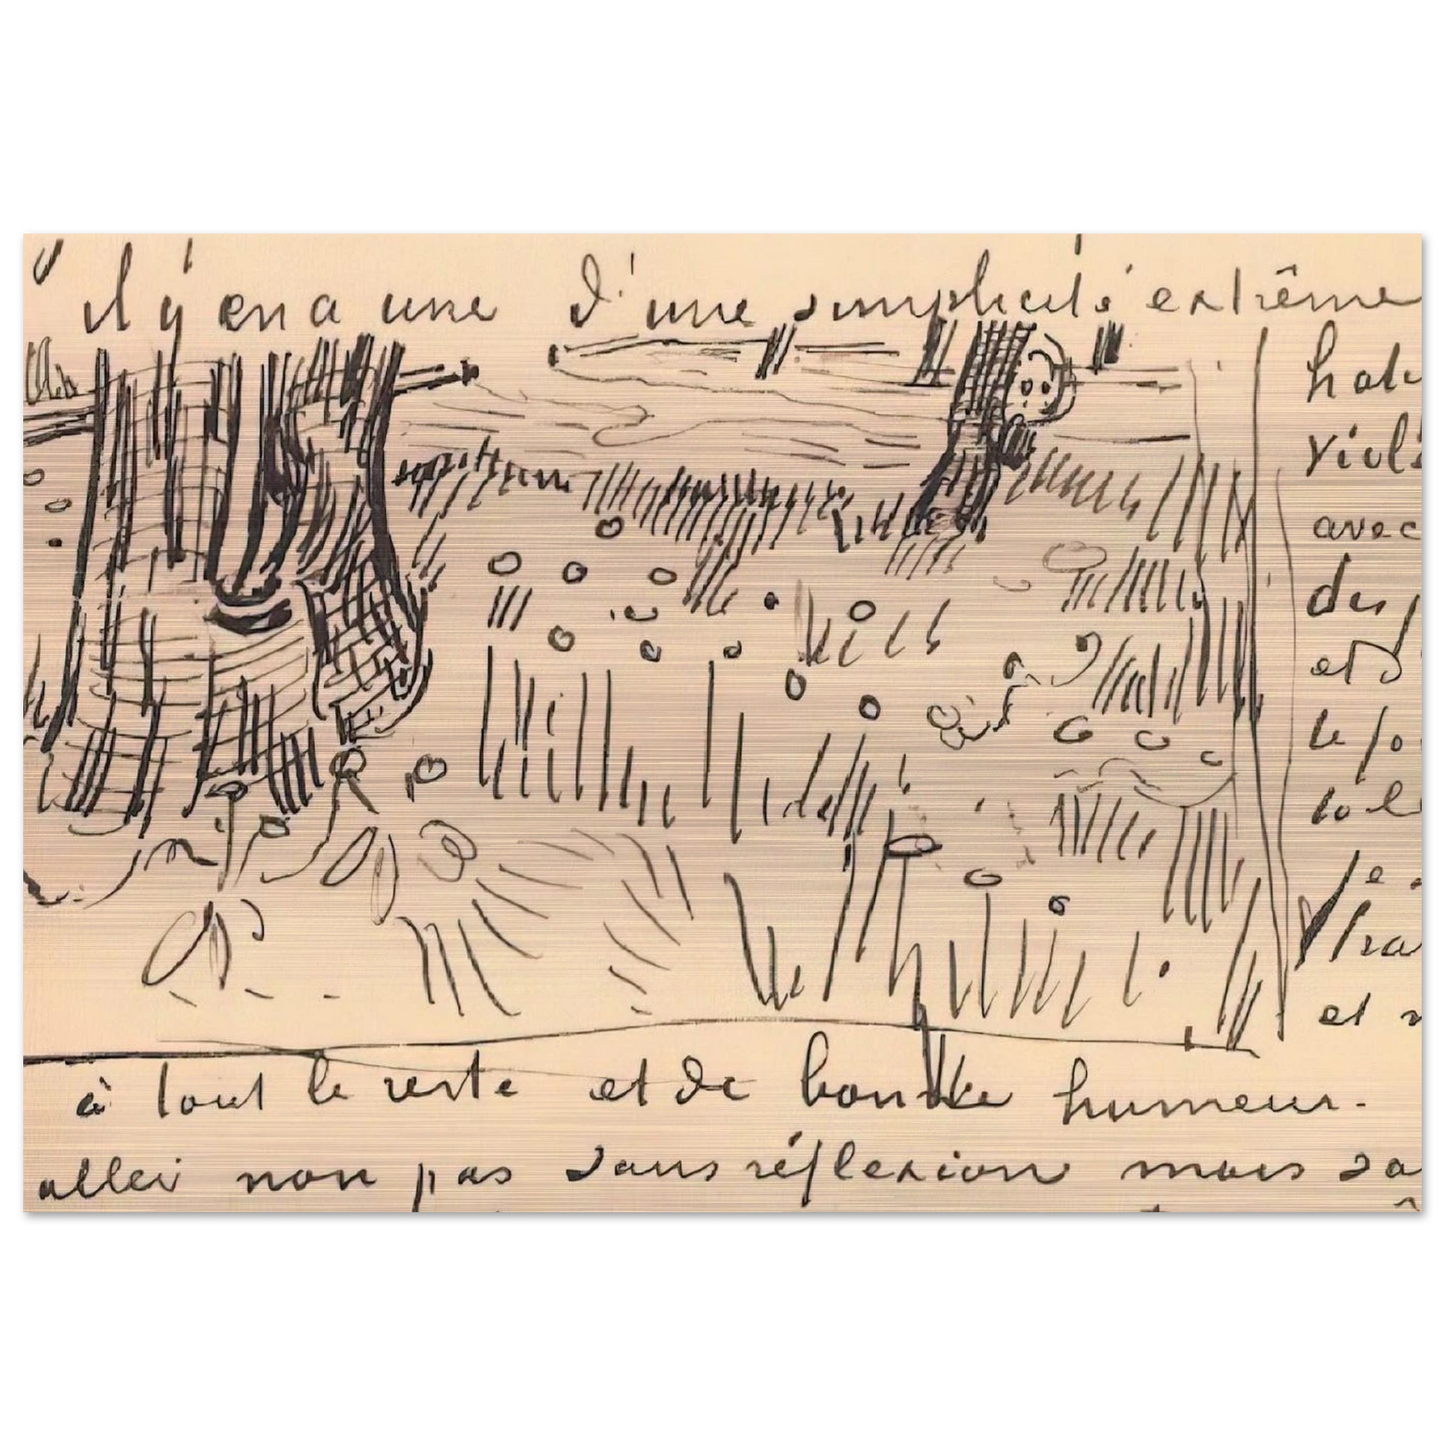 il y en a une d'une simplicité extrême
avec
des
et d
le
et
à tout le reste et de bonne humeur.
aller non pas sans réflexion mais sa